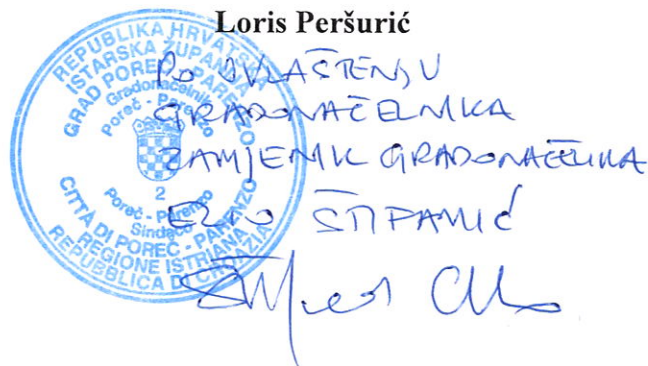 Loris Peršurić
REPUBLIKA HRVATSKA
ISTARSKA ŽUPANIJA
GRAD POREČ - PARENZO
Gradonačelnik
Poreč - Parenzo
2
Poreč - Parenzo
Sindaco
CITTÀ DI POREČ - PARENZO
REGIONE ISTRIANA
REPUBBLICA DI CROAZIA
PO OVLAŠTENJU
GRADONAČELNIKA
ZAMJENIK GRADONAČELNIKA
ELIO ŠTIFANIĆ